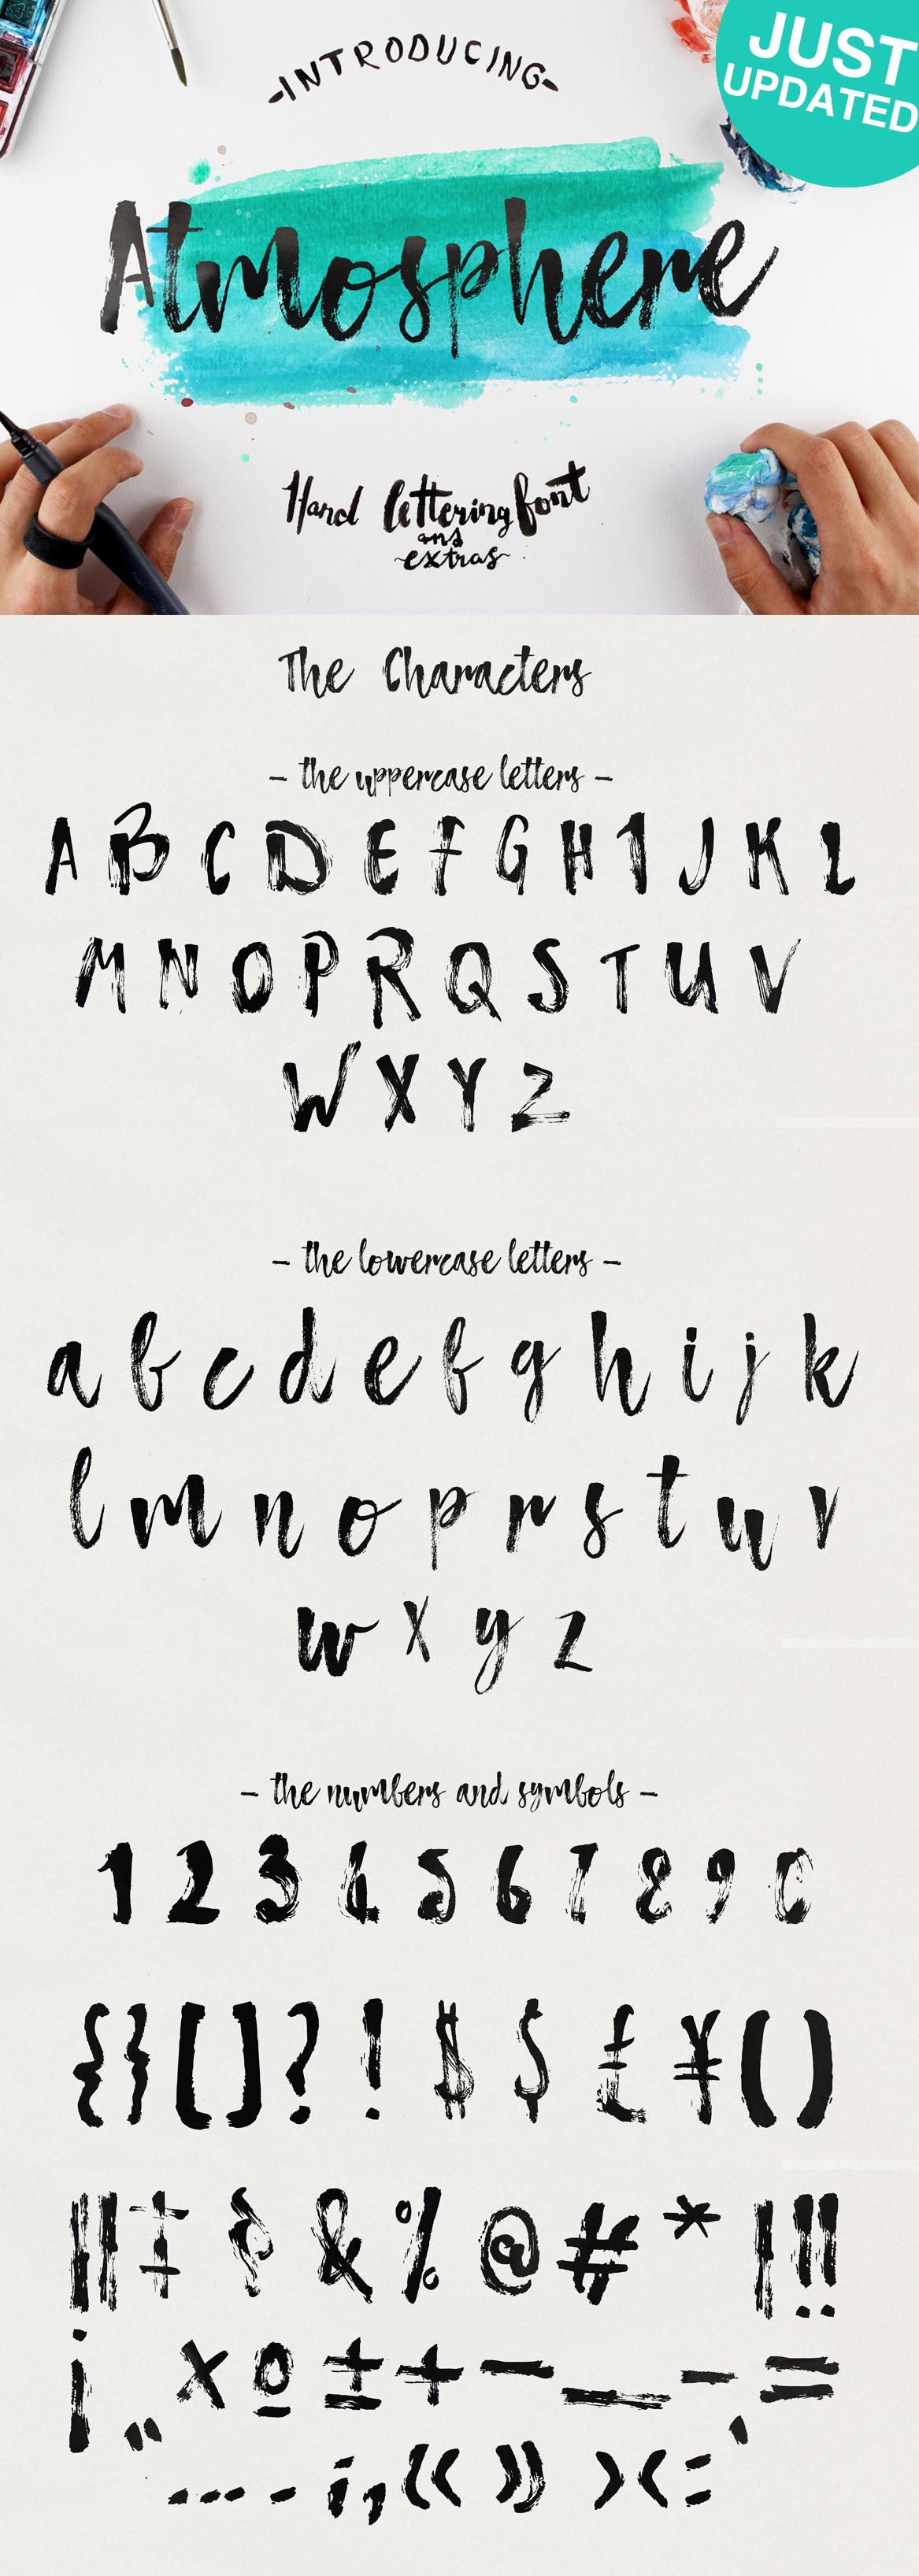 JUST
UPDATED
-INTRODUCING-
Atmosphere
Hand lettering font
and
extras
The Characters
- the uppercase letters -
A B C D E F G H I J K L
M N O P R Q S T U V
W X Y Z
- the lowercase letters -
a b c d e f g h i j k
l m n o p r s t u v
w x y z
- the numbers and symbols -
1 2 3 4 5 6 7 8 9 0
{ } [ ] ? ! $ $ £ ¥ ( )
& % @ # * | ! !
¡ „ × º ± + — _ - = '
… - ; , « » › ‹ :